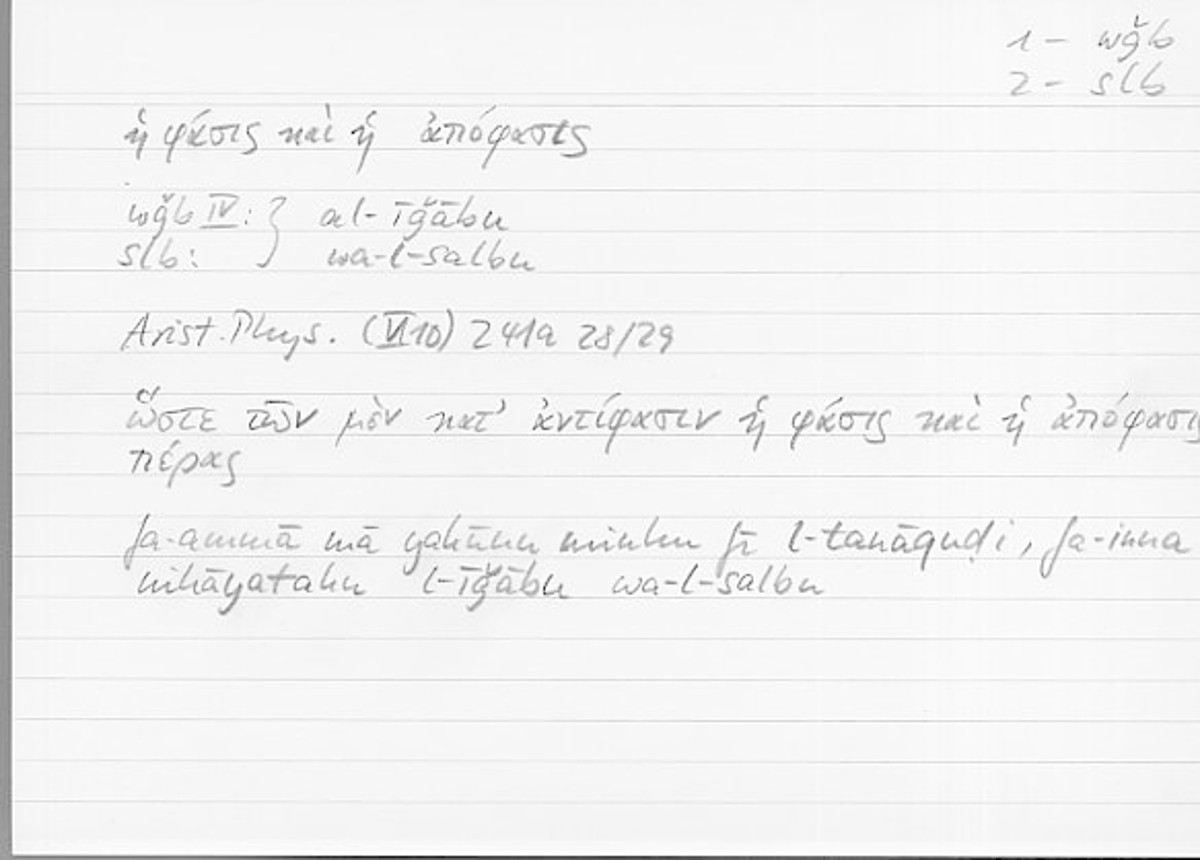 1 – wǧb
2 – slb
ἡ φάσις καὶ ἡ ἀπόφασις
wǧb IV: } al-īǧābu
slb: wa-l-salbu
Arist. Phys. (VI 10) 241a 28/29
ὥστε τῶν μὲν κατ' ἀντίφασιν ἡ φάσις καὶ ἡ ἀπόφασις
πέρας
fa-ammā mā yakūnu minhu fī l-tanāquḍi, fa-inna
nihāyatahu l-īǧābu wa-l-salbu